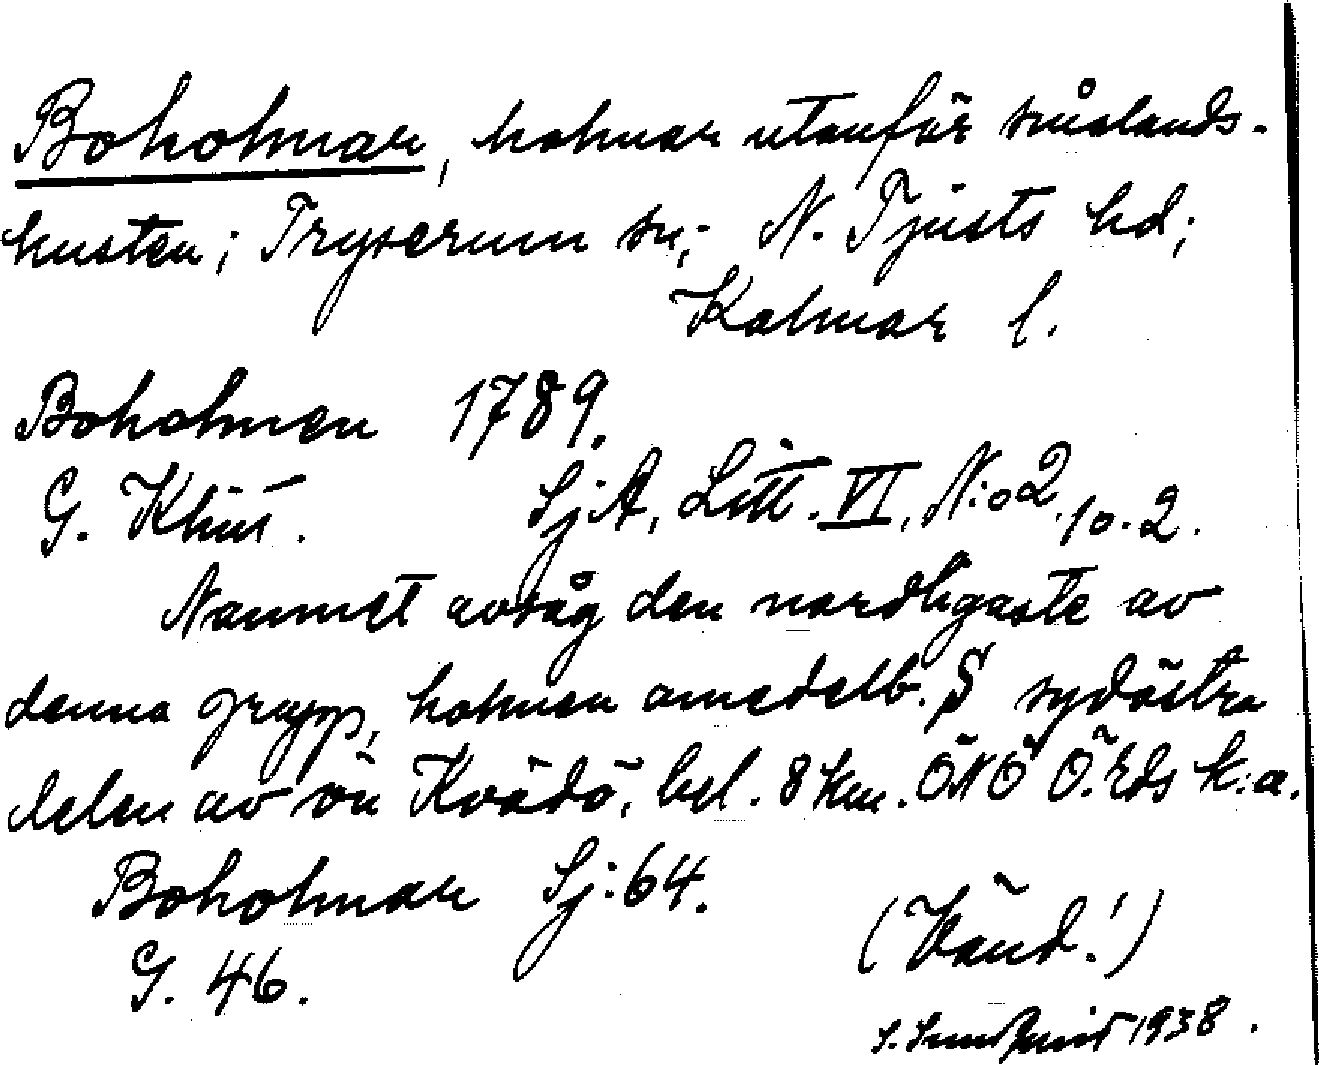 Boholmar, holmar utanför smålands-
kusten; Tryserum sn; N. Tjusts hd;
Kalmar l.
Boholmen 1789.
G. Klint. SjA, Litt. VI, N:o 2, 10.2.
Namnet avsåg den nordligaste av
denna grupp, holmen omedelb. S sydöstra
delen av ön Kvädö, bel. 8 km. ÖNÖ Ö. Eds k:a.
Boholmar Sj:64.
G. 46.
(Vänd!)
S. Sundqvist 1938.